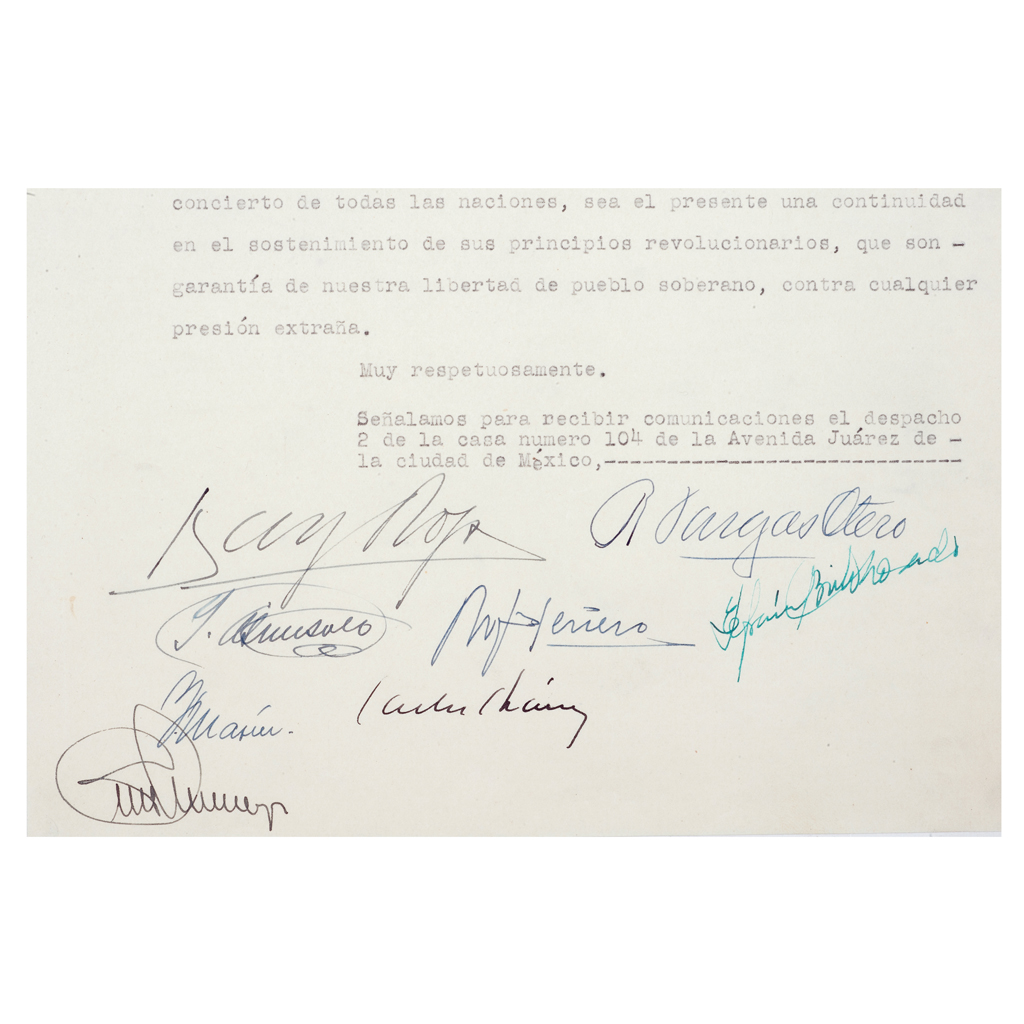 concierto de todas las naciones, sea el presente una continuidad
en el sostenimiento de sus principios revolucionarios, que son -
garantía de nuestra libertad de pueblo soberano, contra cualquier
presión extraña.
Muy respetuosamente.
Señalamos para recibir comunicaciones el despacho
2 de la casa numero 104 de la Avenida Juárez de -
la ciudad de México,-----------------------------
R Vargas Otero
Carlos Cháve
Marín.